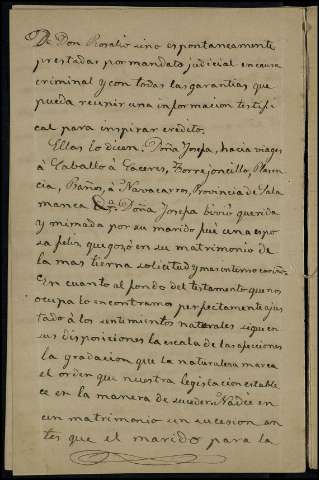 De Don Rosalio sino espontaneamente
prestadas por mandato judicial en causa
criminal y con todas las garantias que
pueda reunir una informacion testifi
cal para inspirar credito.
Ellas lo dicen. Doña Josepa, hacia viages
á Caballo á Caceres, Torrejoncillo, Plasen
cia, Baños, á Navacarros, Provincia de Sala
manca &a. Doña Josepa bivió querida
y mimada por su marido fué una espo
sa feliz que gozó en su matrimonio de
la mas tierna solicitud y mas interno cariño.
En cuanto al fondo del testamento que nos
ocupa lo encontramos perfectamente ajus
tado á los sentimientos naturales sigue en
sus disposiciones la escala de las afecciones
la gradacion que la naturaleza marca
el orden que nuestra legislacion estable
ce en la manera de suceder. Nadie en
un matrimonio sin sucesion an
tes que el marido para la